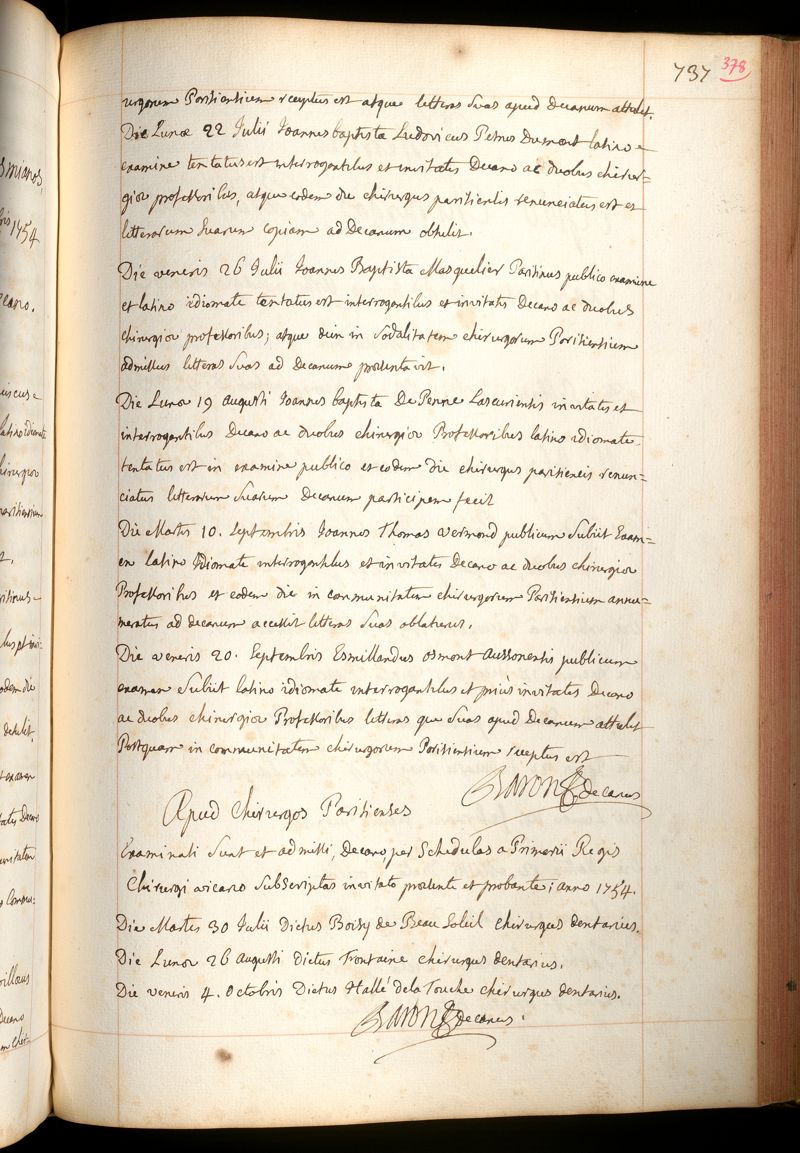 737 378
urgorum Parisientium receptus est atque litteras suas apud Decanum attulit.
Die Lunæ 22 Julii Joannes baptista Ludovicus Petrus Dumont latino
examine tentatus est interrogantibus et invitatis Decano ac duobus chirur=
giæ professoribus, atque eodem die chirurgus parisientis renunciatus est et
litterarum suarum copiam ad Decanum obtulit.
Die veneris 26 Julii Joannes Baptista Masquelier Parisinus publico examine
et latino idiomate tentatus est interrogantibus et invitatis Decano ac duobus
chirurgiæ professoribus; atque dein in sodalitatem chirurgorum Parisientium
admissus litteras suas ad Decanum presentavit.
Die Lunæ 19 augusti Joannes baptista De Penne Lascuriensis invitatis et
interrogantibus Decano ac duobus chirurgiæ Professoribus latino idiomate
tentatus est in examine publico et eodem die chirurgus parisiensis renun=
ciatus litterarum suarum Decanum participem fecit
Die Martis 10. Septembris Joannes Thomas Vermond publicum subiit Exam=
en latino Idiomate interrogantibus et invitatis Decano ac duobus chirurgiæ
Professoribus et eodem die in communitatem chirurgorum Parisientium annu=
meratus ad decanum accessit litteras suas oblaturus.
Die veneris 20. Septembris Esmillandus Osmont aussonensis publicum
examen subiit latino idiomate interrogantibus et priùs invitatis Decano
ac duobus chirurgiæ Professoribus litteras que suas apud Decanum attulit
Postquam in communitatem chirurgorum Parisientium receptus est
Baron decanus
Apud Chirurgos Parisienses
Examinati sunt et admissi, Decano per schedulas a Primarii Regis
Chirurgi vicario subscriptas invitato presente et probante; anno 1754.
Die Martis 30 Julii Dictus Boisy de Beau Soleil chirurgus dentarius.
Die Lunæ 26 Augusti dictus Fontaine chirurgus dentarius.
Die veneris 4. Octobris Dictus Hallé de la Touche chirurgus dentarius.
Baron decanus.